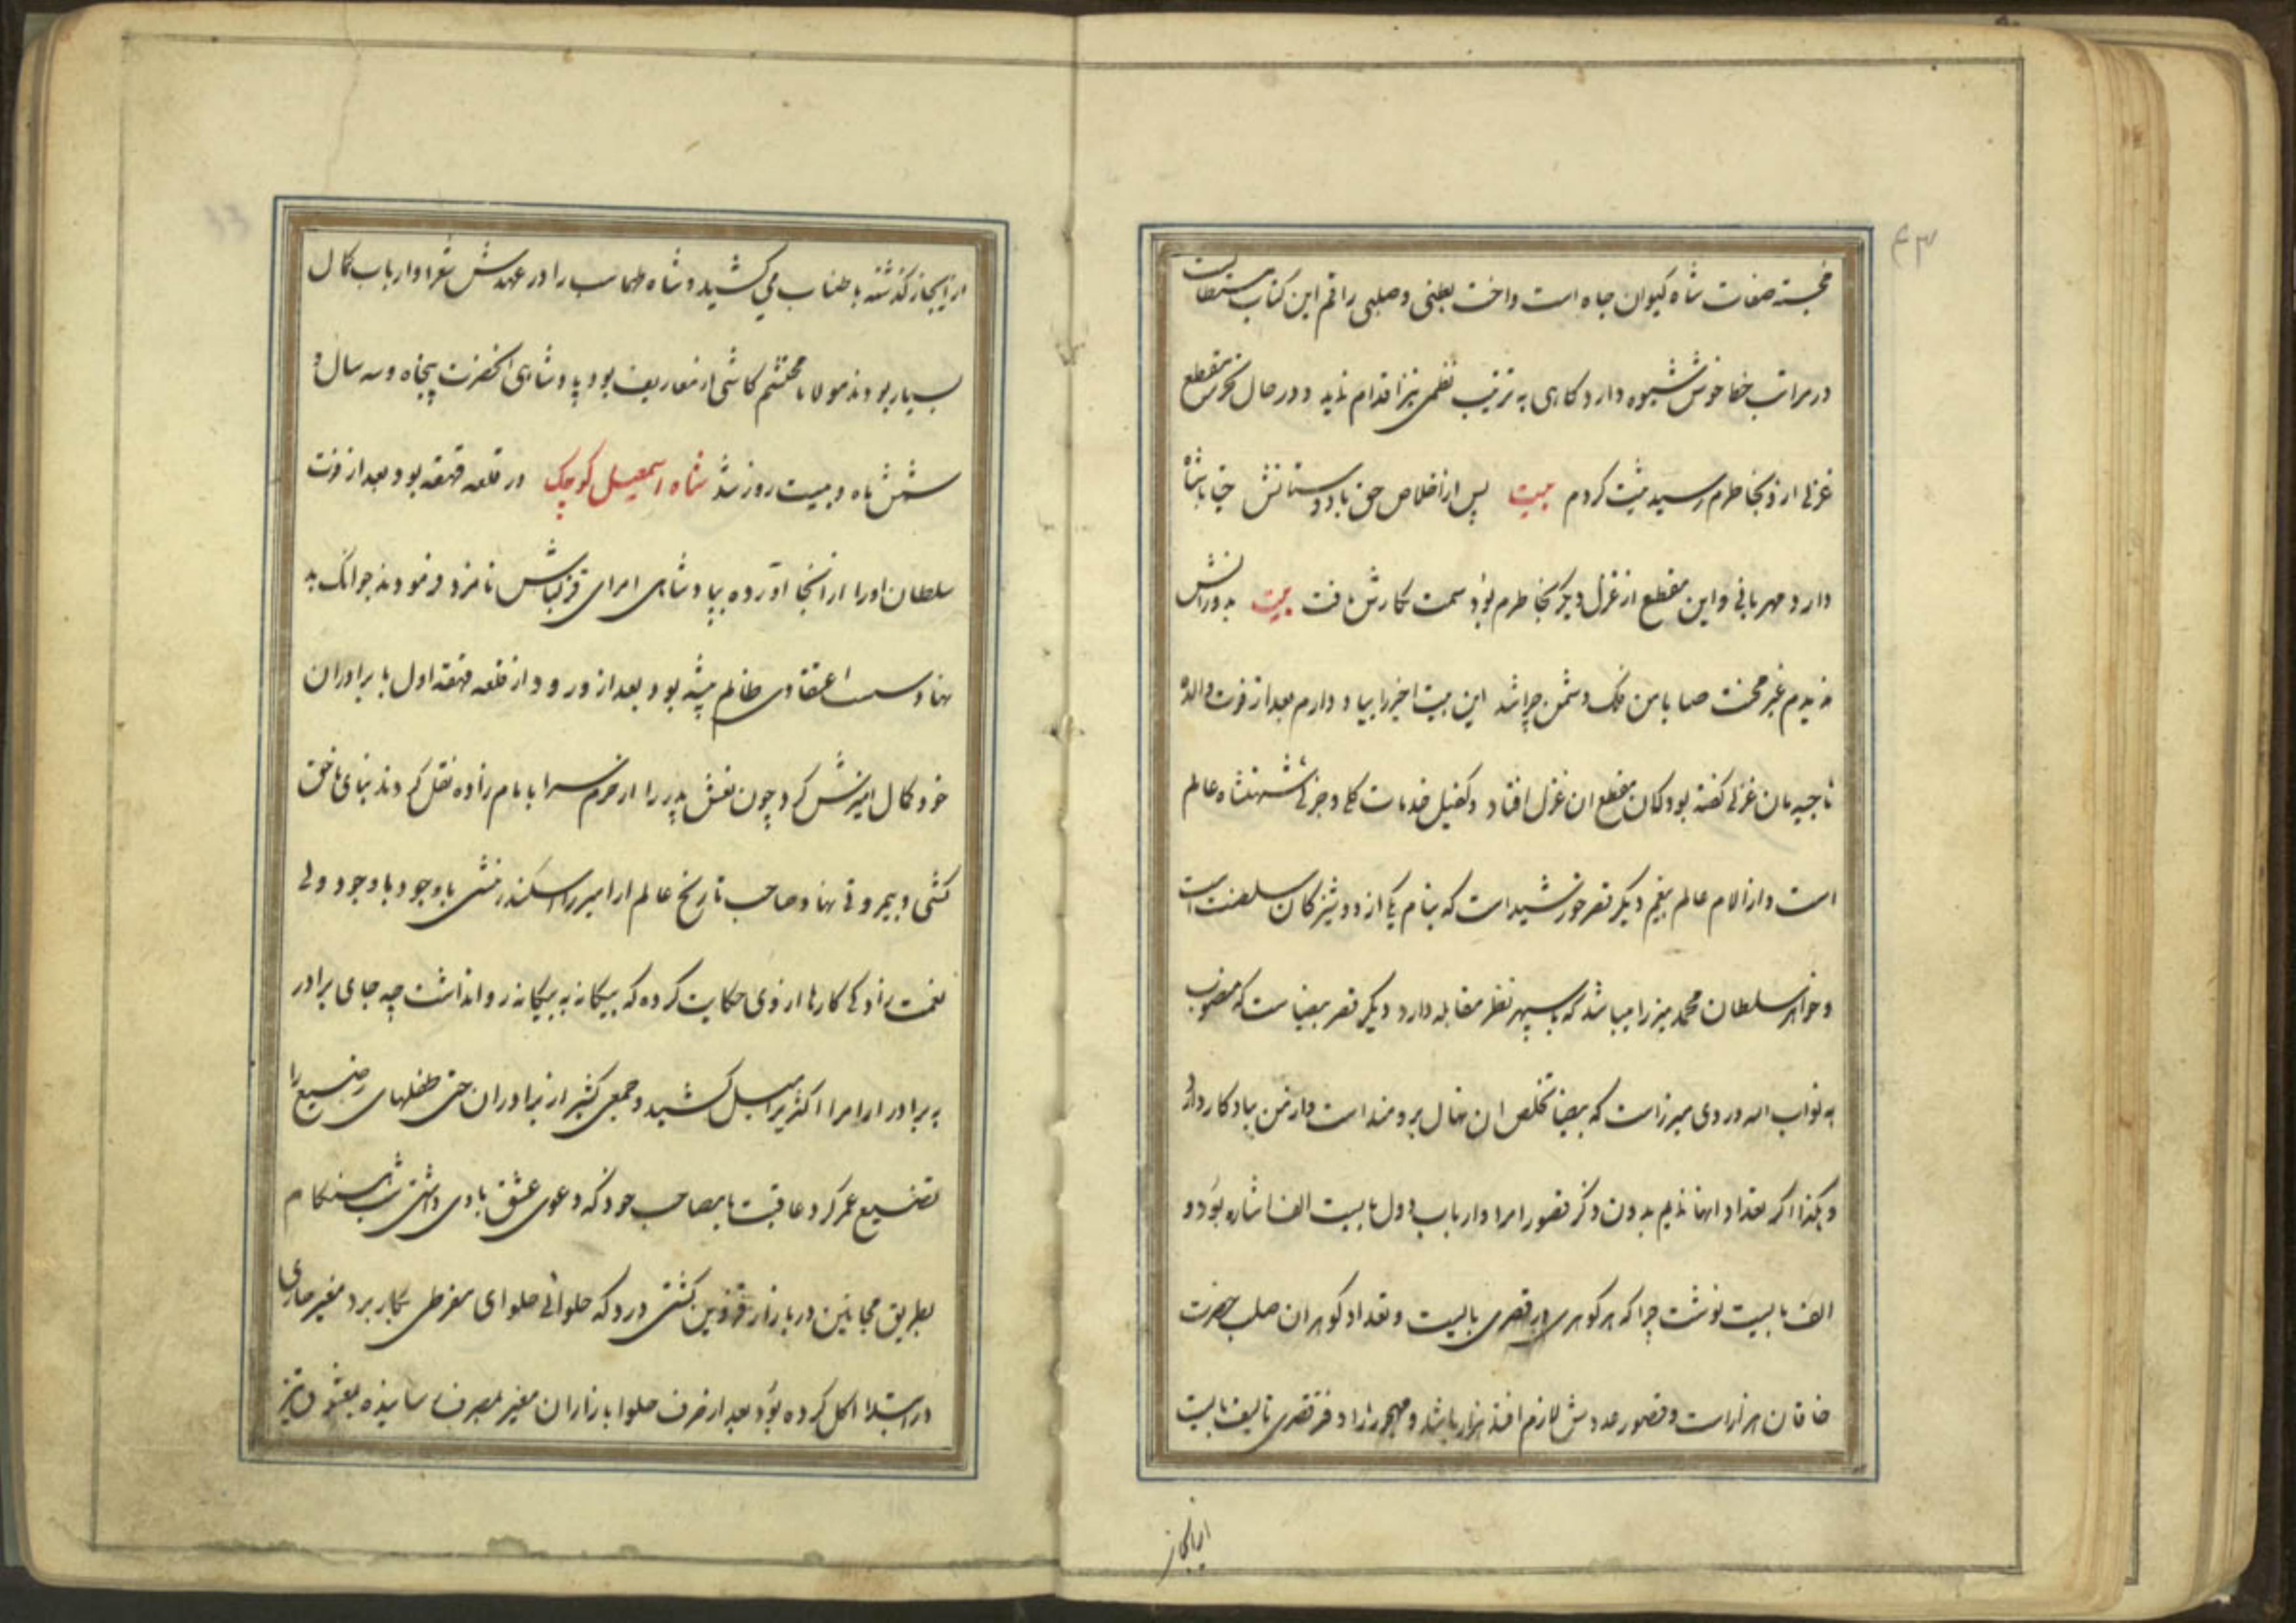 خجسته صفات شاه کیوان جاه است واخت بطنی وصلبی راقم این کتاب مستطاب
در مراتب خط خوش شیوه دارد کاهی به ترتیب نظمی نیز اقدام نماید ودر حال تحریر مقطع
غزلی از او بخاطرم رسید ثبت کردم بیت پس از اخلاص حق با دوستانش جناب شاه
دارد مهربانی واین مقطع از غزل دیکر بخاطرم بود سمت نکارش یافت بیت بدورانش
ندیدم غیر محنت صبا با من فلک دشمن چرا شد این بیت اخیر را بیاد دارم بعد از فوت والده
ماجده مان غزلی کفته بود کان مقطع ان غزل افتاد وکفیل خدمات کلی وجزئی شهنشاه عالم
است واز الام عالم بیغم دیکر قصر خورشید است که بنام یکی از دوشیزکان سلطنت است
وخواهر سلطان محمد میرزا میباشد که با سپهر نظر مقابله دارد دیکر قصر بیضا ست که منصوب
به نواب الله وردی میرزاست که بیضا تخلص ان نهال برومند است واز من بیادکار دارد
وهکذا اکر تعداد انها نمایم بدون ذکر قصور امرا وارباب دول بایست الف اشاره بود و
الف بایست نوشت چرا که هر کوهری را قصری بایست وتعداد کوهران صلب حضرت
خاقان هزار است وقصور عدوش لازم افتد هزار باشد وهیجده زاد دفتر قصری تالیف بایست
از ایجاز
از ایجاز کذشته باطناب می کشید وشاه طهماسب را در عهدش شعرا وارباب کمال
بسیار بودند مولانا محتشم کاشی از معاریف بود پادشاهی انحضرت پنجاه وسه سال و
شش ماه وبیست روز شد شاه اسمعیل کوچک در قلعه قهقهه بود بعد از فوت
سلطان اورا از انجا اورده بپادشاهی امرای قزلباش نامزد فرمودند جوانک بد
نهاد سست اعتقادی ظالم پیشه بود بعد از ورود از قلعه قهقهه اول با برادران
خود کمال امیزش کرد چون نعش پدر را از حرم سرا بامام زاده نقل کردند بنای ناحق
کشی وبیمروتی نهاد وصاحب تاریخ عالم ارا میرزا اسکندر منشی باوجود باوجود ولی
نعمت زادکی کارها از وی حکایت کرده که بیکانه به بیکانه روا نداشت چه جای برادر
به برادر از امرا اکثر را میل کشید وجمعی کثیر از برادران حتی طفلهای رضیع را
تضییع عمر کرد وعاقبت با مصاحب خود که دعوی عشق با وی داشتی شب هنکام
بطریق مجانین در بازار قزوین کشتی ودر دکه حلوائی حلوای مفرطی بکار برد مغیر حاری
در ابتدا اکل کرده بود بعد از صرف حلوا بازاران مغیر بمصرف رسانیده بعشوق نیز